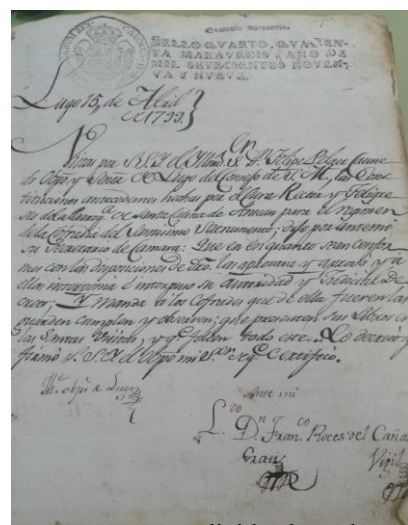 Quarenta Maravedis.
SELLO QUARTO, QUAREN-
TA MARAVEDIS, AÑO DE
MIL SETECIENTOS NOVEN-
TA Y NUEVE.
Lugo 15, de Abril
de 1799
Vistas por S.S.Y. el Sr. Dn. Felipe Pelaez Caunedo
de Obpo. y Señor de Lugo del Consejo de S. M., las Cons
tituciones antecedentes hechas por el Cura Rector y Feligre
ses de la Parroq. de Santa de para el regimen
de la Cofradia del Santisimo Sacramento; Dijo por antemi
su Secretario de Camara: Que en en quanto sean confor
mes con las disposiciones de dro. las aprovava y aprovó y a
ellas interponia e interpuso su autoridad y Judicial De
creto; Y Manda a los Cofrades que de ella fueren las
guarden cumplan y observen; que presenten sus Libros en
las Santas Visitas, y todo este. Lo decretó y
firmó S.S.Y. el Obpo mi Sr. de que Certifico.
Phe. Obpo de Lugo
Ante mi
L.do Dn. Fran.co Roces del Cañal
Vigil